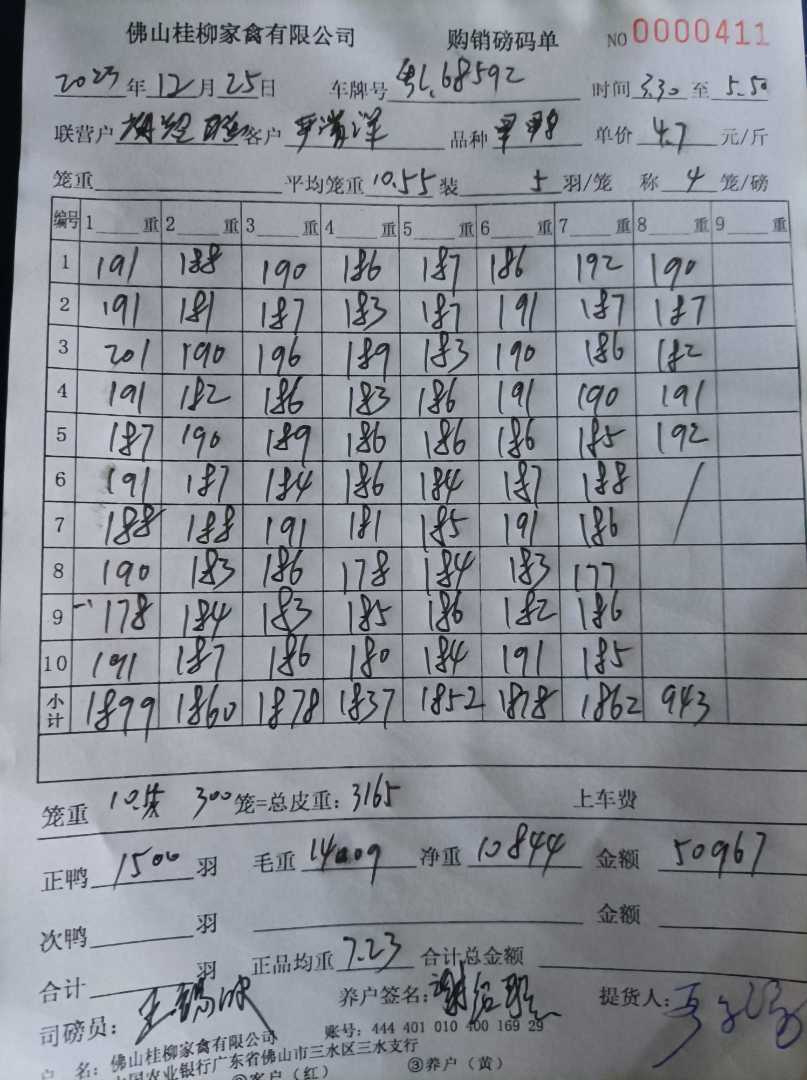 佛山桂柳家禽有限公司 购销磅码单 NO 0000411
2023年12月25日 车牌号 粤L68592 时间 3.30 至 5.50
联营户 客户 品种 单价 4.7 元/斤
笼重 平均笼重 10.55 装 5 羽/笼 称 4 笼/磅
编号 1 重 2 重 3 重 4 重 5 重 6 重 7 重 8 重 9 重
1 191 188 190 186 187 186 192 190
2 191 181 187 183 187 191 187 187
3 201 190 196 189 183 190 186 182
4 191 182 186 183 186 191 190 191
5 187 190 189 186 186 186 185 192
6 191 187 184 186 184 187 188 /
7 188 188 191 181 185 191 186
8 190 183 186 178 184 183 177
9 178 184 183 185 186 182 186
10 191 187 186 180 184 191 185
小计 1899 1860 1878 1837 1852 1878 1862 943
笼重 300笼=总皮重：3165 上车费
正鸭 1500 羽 毛重 14009 净重 10844 金额 50967
次鸭 羽 金额
合计 羽 正品均重 7.23 合计总金额
司磅员： 养户签名： 提货人：
户 名：佛山桂柳家禽有限公司 账号：444 401 010 400 169 29
中国农业银行广东省佛山市三水区三水支行
②客户（红） ③养户（黄）